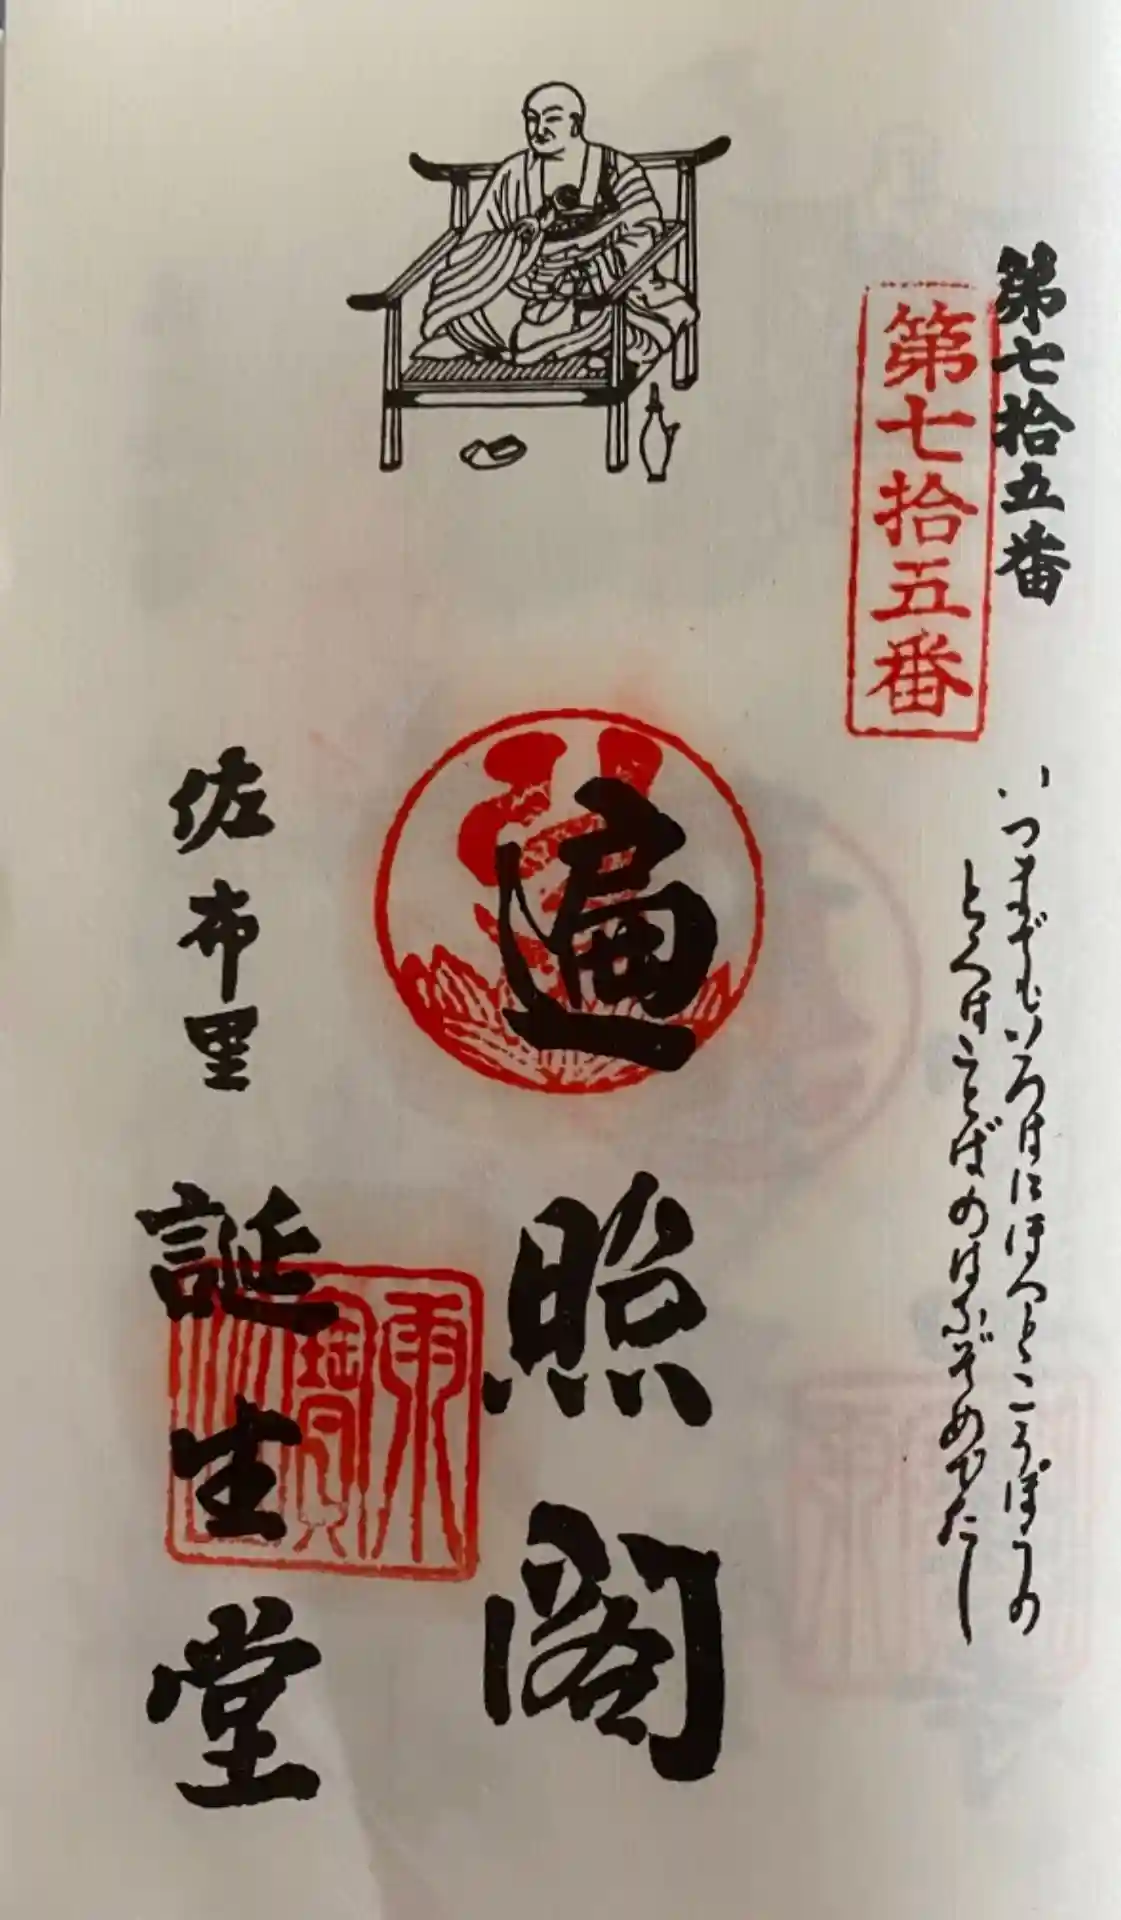 第七拾五番
第七拾五番
いつまでもいろはにほへとこうぼうの
とくはことばのはなぞめでたし
遍照閣
佐布里
誕生堂